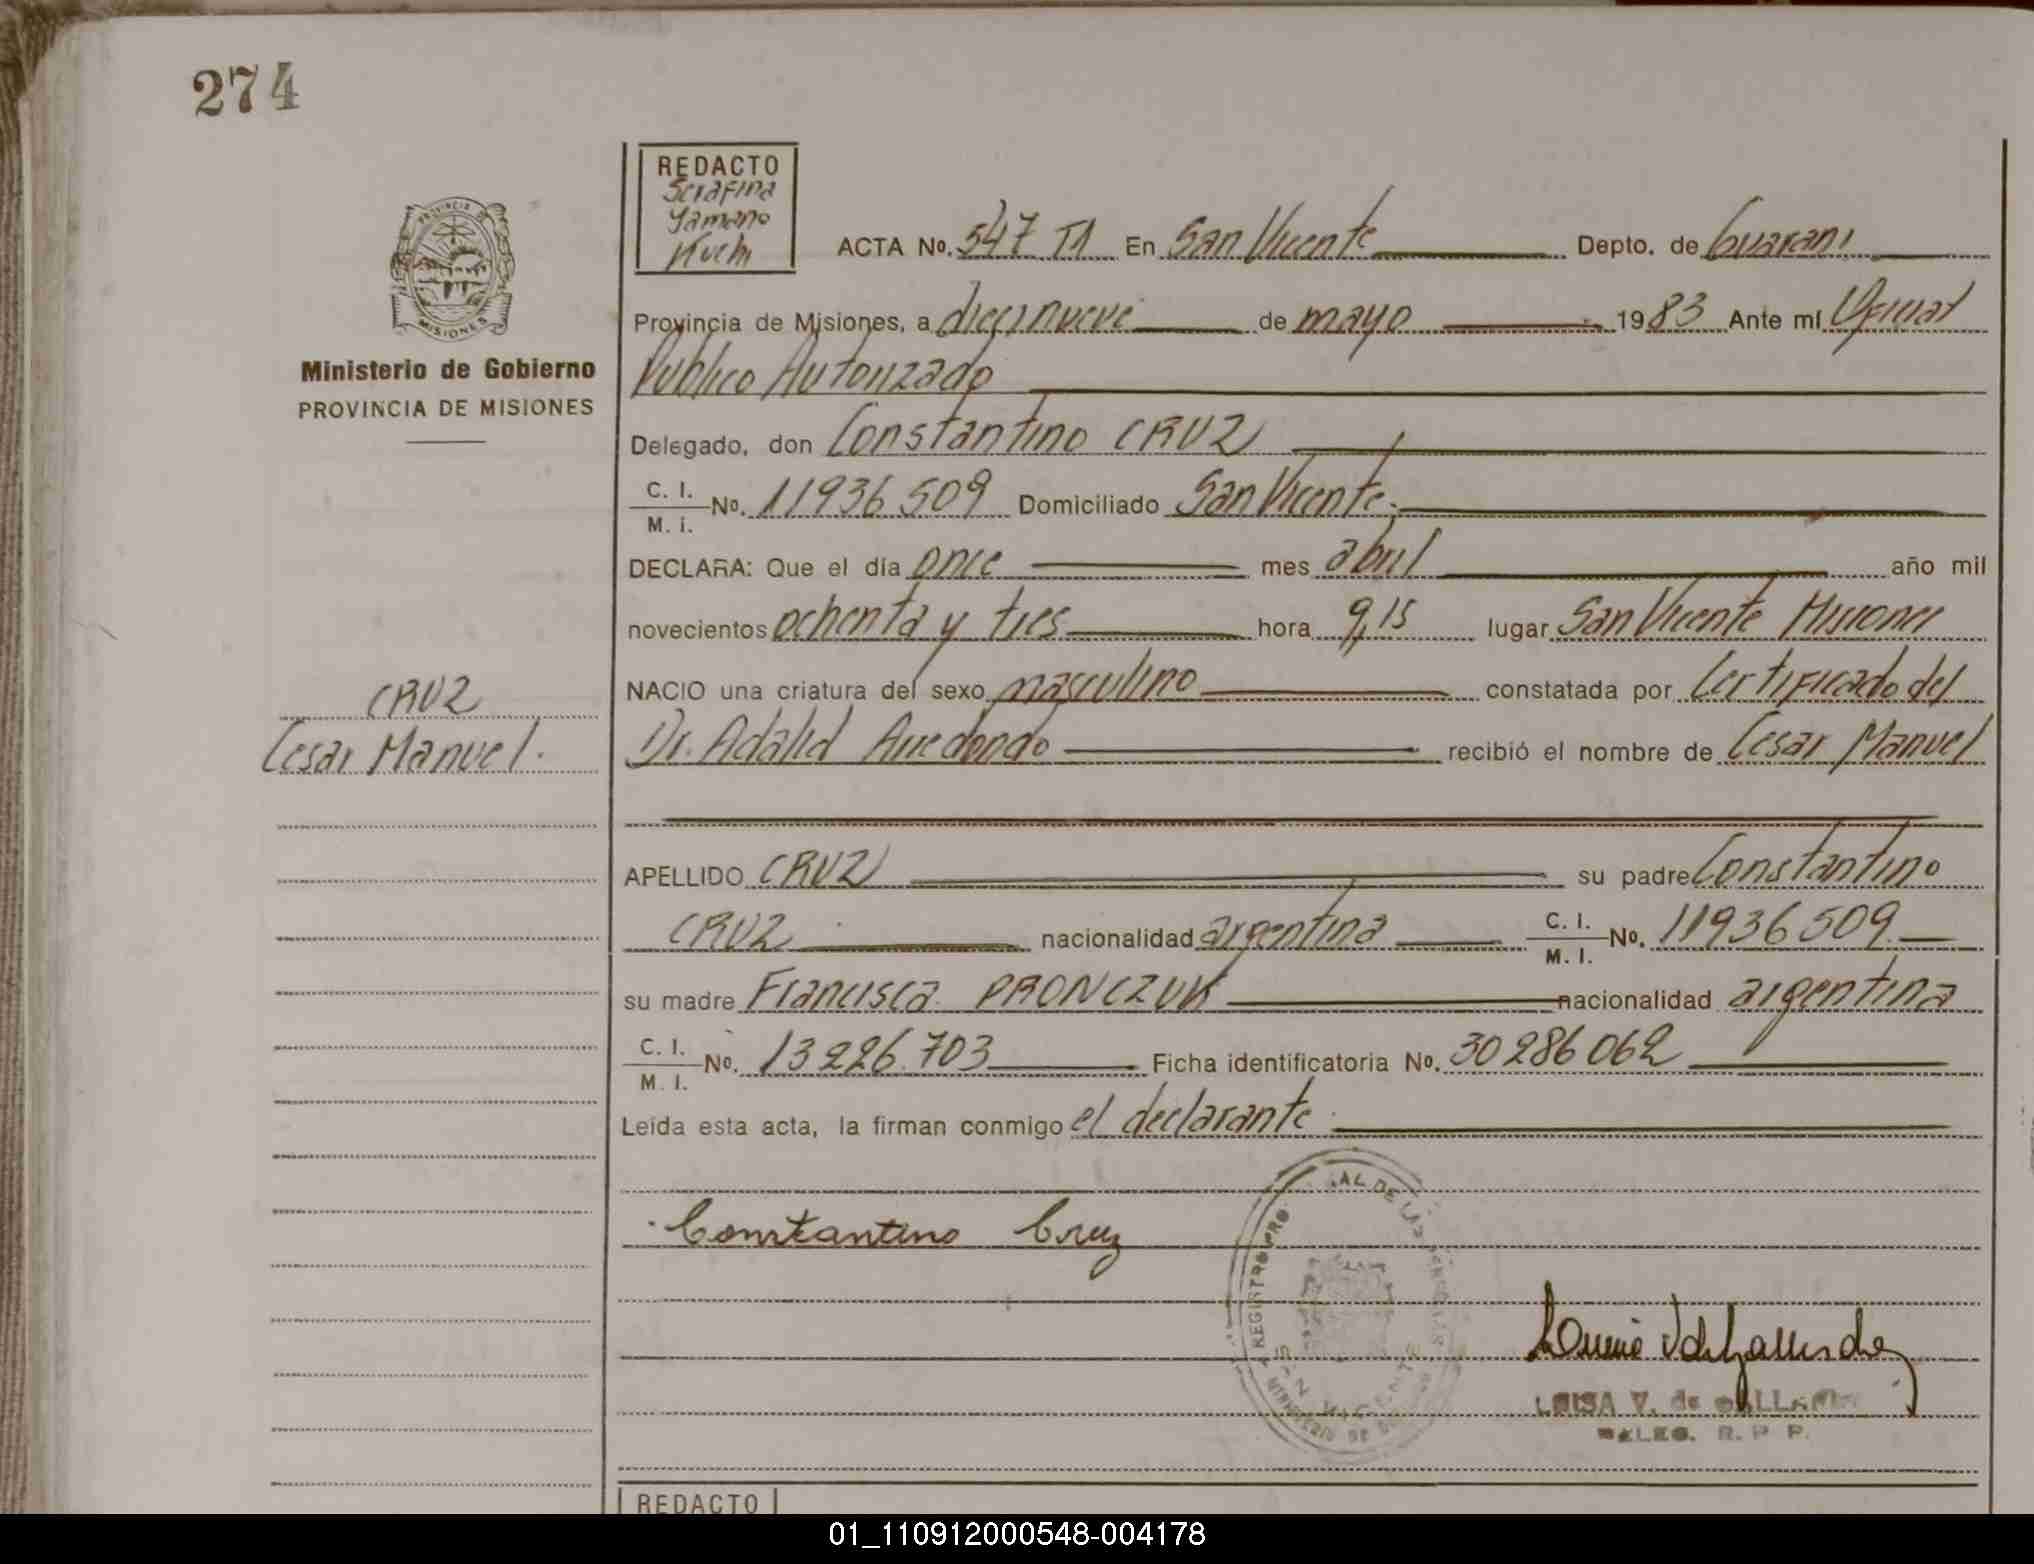 274
REDACTO
Serafina
Yamano
Kuchi
ACTA No. 547 T1 En San Vicente Depto. de Guarani
PROVINCIA DE
MISIONES
Provincia de Misiones, a diecinueve de mayo 1983 Ante mí Oficial
Ministerio de Gobierno
Publico Autorizado
PROVINCIA DE MISIONES
Delegado, don Constantino CRUZ
C. I.
M. I. No. 11936509 Domiciliado San Vicente.
DECLARA: Que el día once mes abril año mil
novecientos ochenta y tres hora 9,15 lugar San Vicente Misiones
CRUZ
NACIO una criatura del sexo masculino constatada por Certificado del
Cesar Manuel.
Dr. Adalid Arredondo recibió el nombre de Cesar Manuel
APELLIDO CRUZ su padre Constantino
CRUZ nacionalidad argentina C. I.
M. I. No. 11936509
su madre Francisca PRONCZUK nacionalidad argentina
C. I.
M. I. No. 13226.703 Ficha identificatoria No. 30286062
Leída esta acta, la firman conmigo el declarante
Constantino Cruz
REGISTRO PRO AL DE LAS
SAN VICENTE
MINISTERIO DE
LUISA V. de
DELEG. R. P. P.
REDACTO
01_110912000548-004178